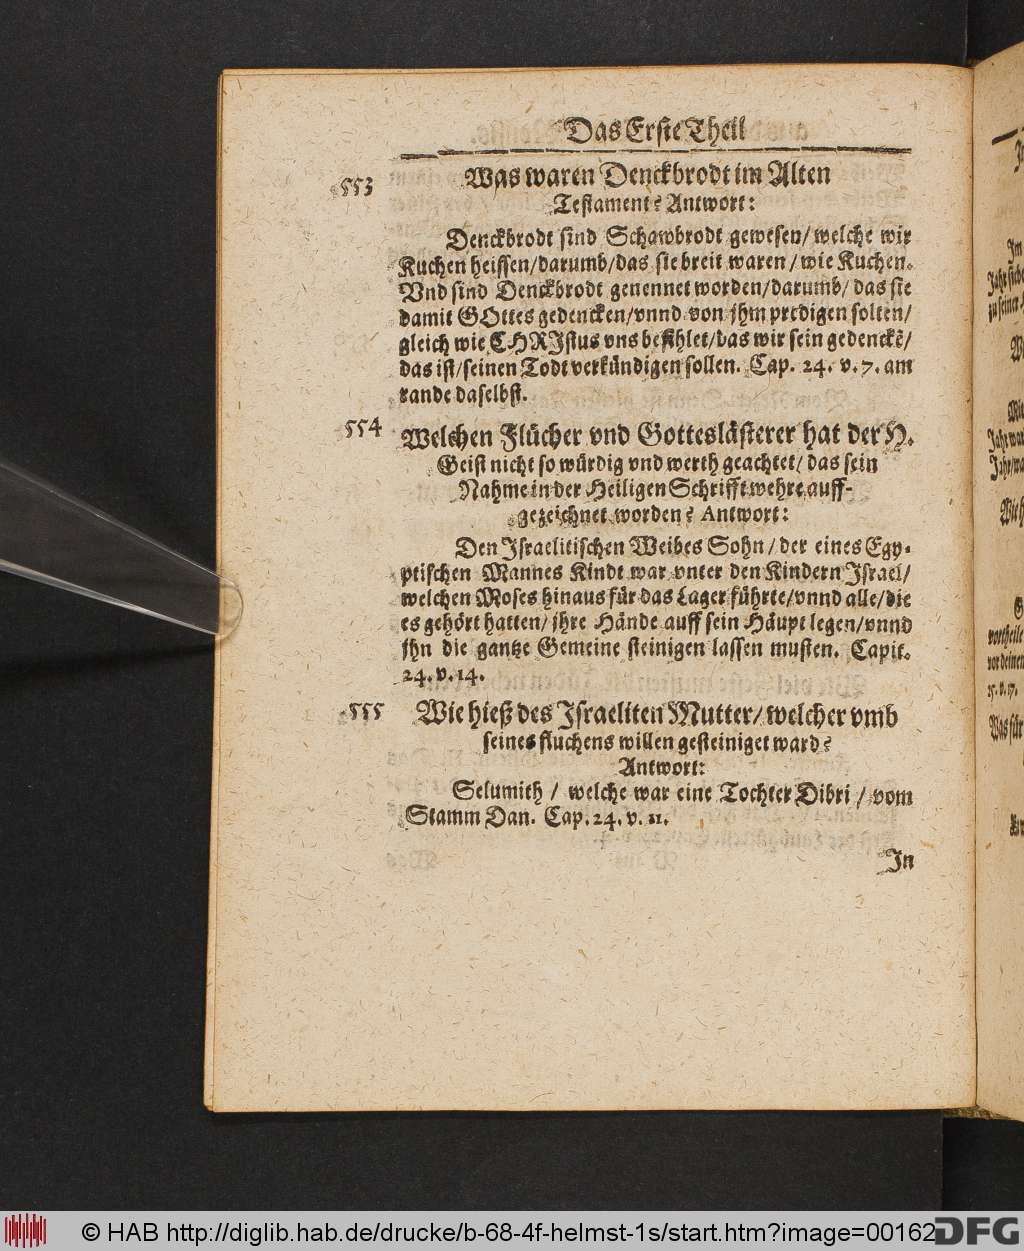 Das Erste Theil
553 Was waren Denckbrodt im Alten
Testament? Antwort:
Denckbrodt sind Schawbrodt gewesen/ welche wir
Kuchen heissen/ darumb/ das sie breit waren/ wie Kuchen.
Vnd sind Denckbrodt genennet worden/ darumb/ das sie
damit GOttes gedencken/ vnnd von jhm predigen solten/
gleich wie CHRIstus vns befihlet/ das wir sein gedenckẽ/
das ist/ seinen Todt verkündigen sollen. Cap. 24. v. 7. am
rande daselbst.
554 Welchen Flücher vnd Gotteslästerer hat der H.
Geist nicht so würdig vnd werth geachtet/ das sein
Nahme in der Heiligen Schrifft wehre auff-
gezeichnet worden? Antwort:
Den Israelitischen Weibes Sohn/ der eines Egy-
ptischen Mannes Kindt war vnter den Kindern Israel/
welchen Moses hinaus für das Lager führte/ vnnd alle/ die
es gehört hatten/ jhre Hände auff sein Häupt legen/ vnnd
jhn die gantze Gemeine steinigen lassen musten. Capit.
24. v. 14.
555 Wie hieß des Israeliten Mutter/ welcher vmb
seines fluchens willen gesteiniget ward?
Antwort:
Selumith / welche war eine Tochter Dibri / vom
Stamm Dan. Cap. 24. v. 11.
In
© HAB http://diglib.hab.de/drucke/b-68-4f-helmst-1s/start.htm?image=00162
DFG